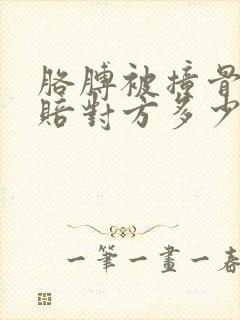 胳膊被撞骨
賠對方多少
一筆一畫一春